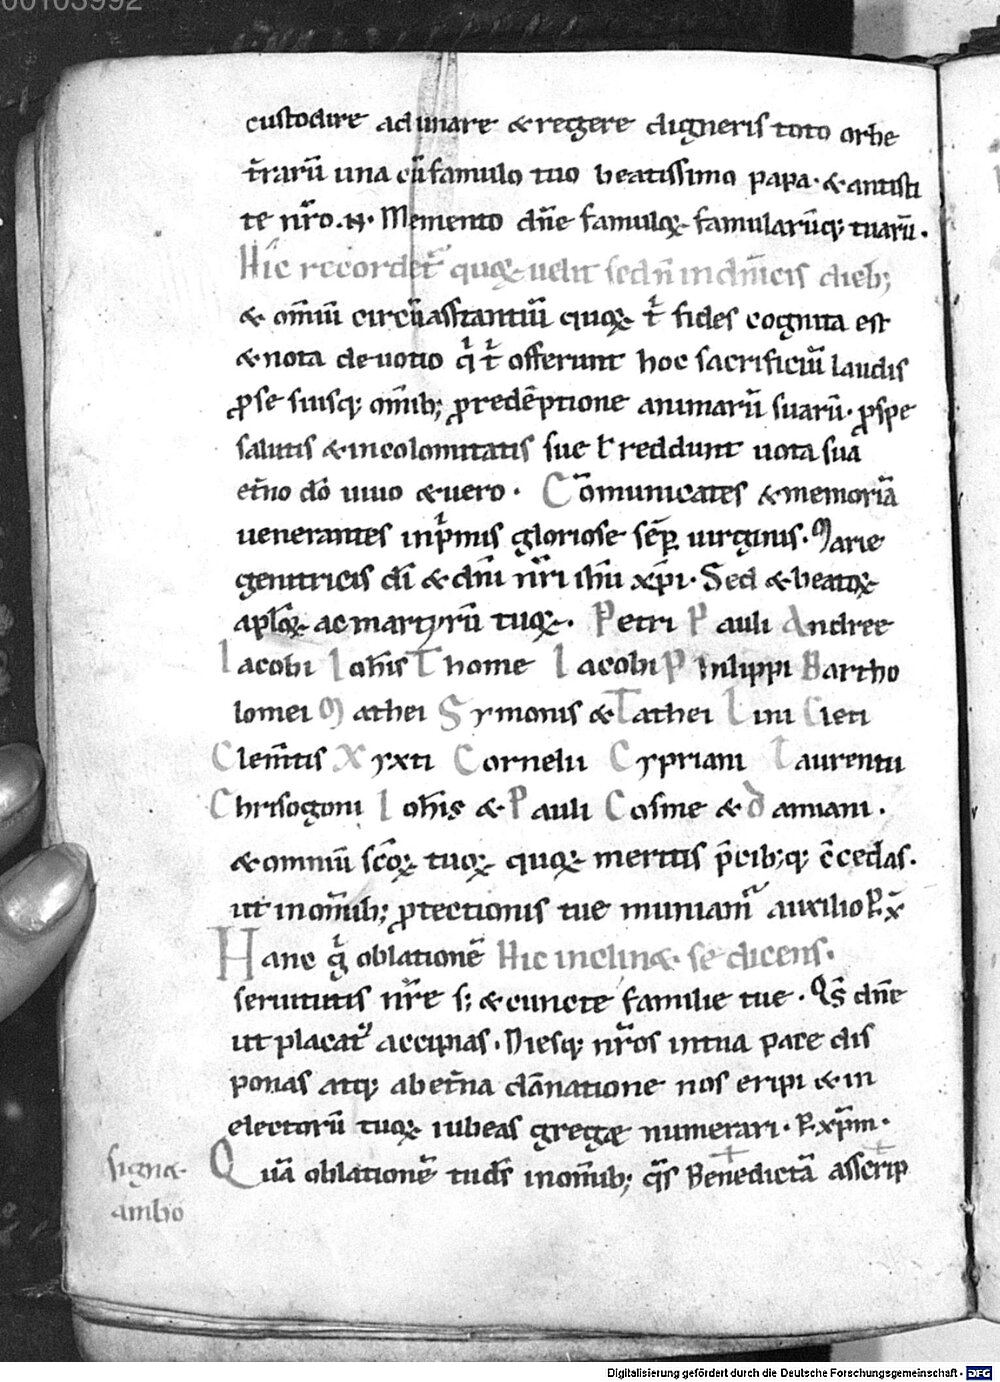 00103992
custodire adunare & regere digneris toto orbe
t̄rarū una cū famulo tuo beatissimo papa · & antisti
te nr̄o .N. Memento dn̄e famuloꝝ famularūq; tuarū.
Hic recordet᷑ quoꝝ uelit sed n̄ in dn̄icis dieb;
& om̄iū circūastantiū quoꝝ t' fides cognita est
& nota deuotio q' t' offerunt hoc sacrificiū laudis
ꝓ se suisq; om̄ib; ꝓ redēptione animarū suarū · ꝓ spe
salutis & incolomitatis sue t' reddunt uota sua
et̄no dō uiuo & uero · Cōmunicates & memoriā
uenerantes inp'mis gloriose sēp uirginis · Marie
genitricis dī & dn̄i nr̄i ihū xp̄i · Sed & beatoꝝ
apl̄oꝝ ac martyrū tuoꝝ · Petri Pauli Andree
Iacobi Ioh̄is Thome Iacobi Philippi Bartho
lomei Mathei Symonis & Tathei Lini Cleti
Clem̄tis Xyxti Cornelii Cypriani Laurentii
Chrisogoni Ioh̄is & Pauli Cosme & Damiani .
& omniū sc̄oꝝ tuoꝝ quoꝝ meritis p̄cib;q; c̄cedas .
ut in om̄ib; ꝓtectionis tue muniam᷑ auxilio P x̄
Hanc g' oblationē Hic inclinæ se dicens .
seruitutis nr̄e s; & cuncte familie tue · Qs̄ dn̄e
ut placat᷒ accipias . Diesq; nr̄os in tua pace dis
ponas atq; ab et̄na dānatione nos eripi & in
electorū tuoꝝ iubeas gregæ numerari · P xp̄m ·
Quā oblationē tu ds̄ in om̄ib; qs̄ Benedictā asscrip
signa
ambo
Digitalisierung gefördert durch die Deutsche Forschungsgemeinschaft - DFG